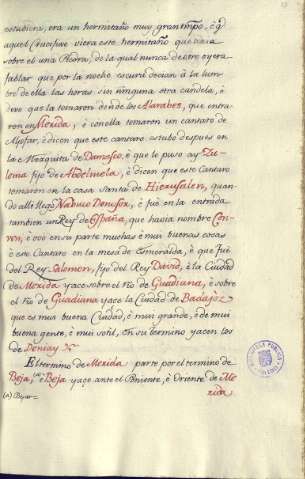 estudiera, era un hermitaño muy gran tpo. è q.
aquel Crucifixo viera este hermitaño que iacia
sobre el una Piedra, de la qual nunca dentro oyera
fablar que por la noche escura decian à la lum-
bre de ella las horas sin ninguna otra candela, è
dixo que la tomaron dende los Alarabes, que entra-
ron en Merida, è con ella tomaron un cantaro de
Aljofar, è dicen que este cantaro estubo despues en
la Mezquita de Damasco, è que le puso ay Zu-
lema fijo de Abdelmelc, è dicen que este Cantaro
tomaron en la casa Santa de Hierusalen, quan-
do alli llegó Nabuco Donosor, è fue en la entrada
tambien un Rey de España, que havia nombre
è ovo en su parte muchas è mui buenas cocas
è este Cantaro en la mesa de Esmeralda, è que fué
del Rey Salomon, fijo del Rey David, è la Ciudad
de Merida yace sobre el Rio de Guadiana, è sobre
el Rio de Guadiana yace la Ciudad de Badajoz
que es mui buena Ciudad, è mui grande, è de mui
buena gente, è mui sotil, en su termino yacen los
de
El termino de Merida parte por el termino de
Beja, (a) è Beja yace ante el Poniente, è Oriente de Me-
(a) Bejar rida